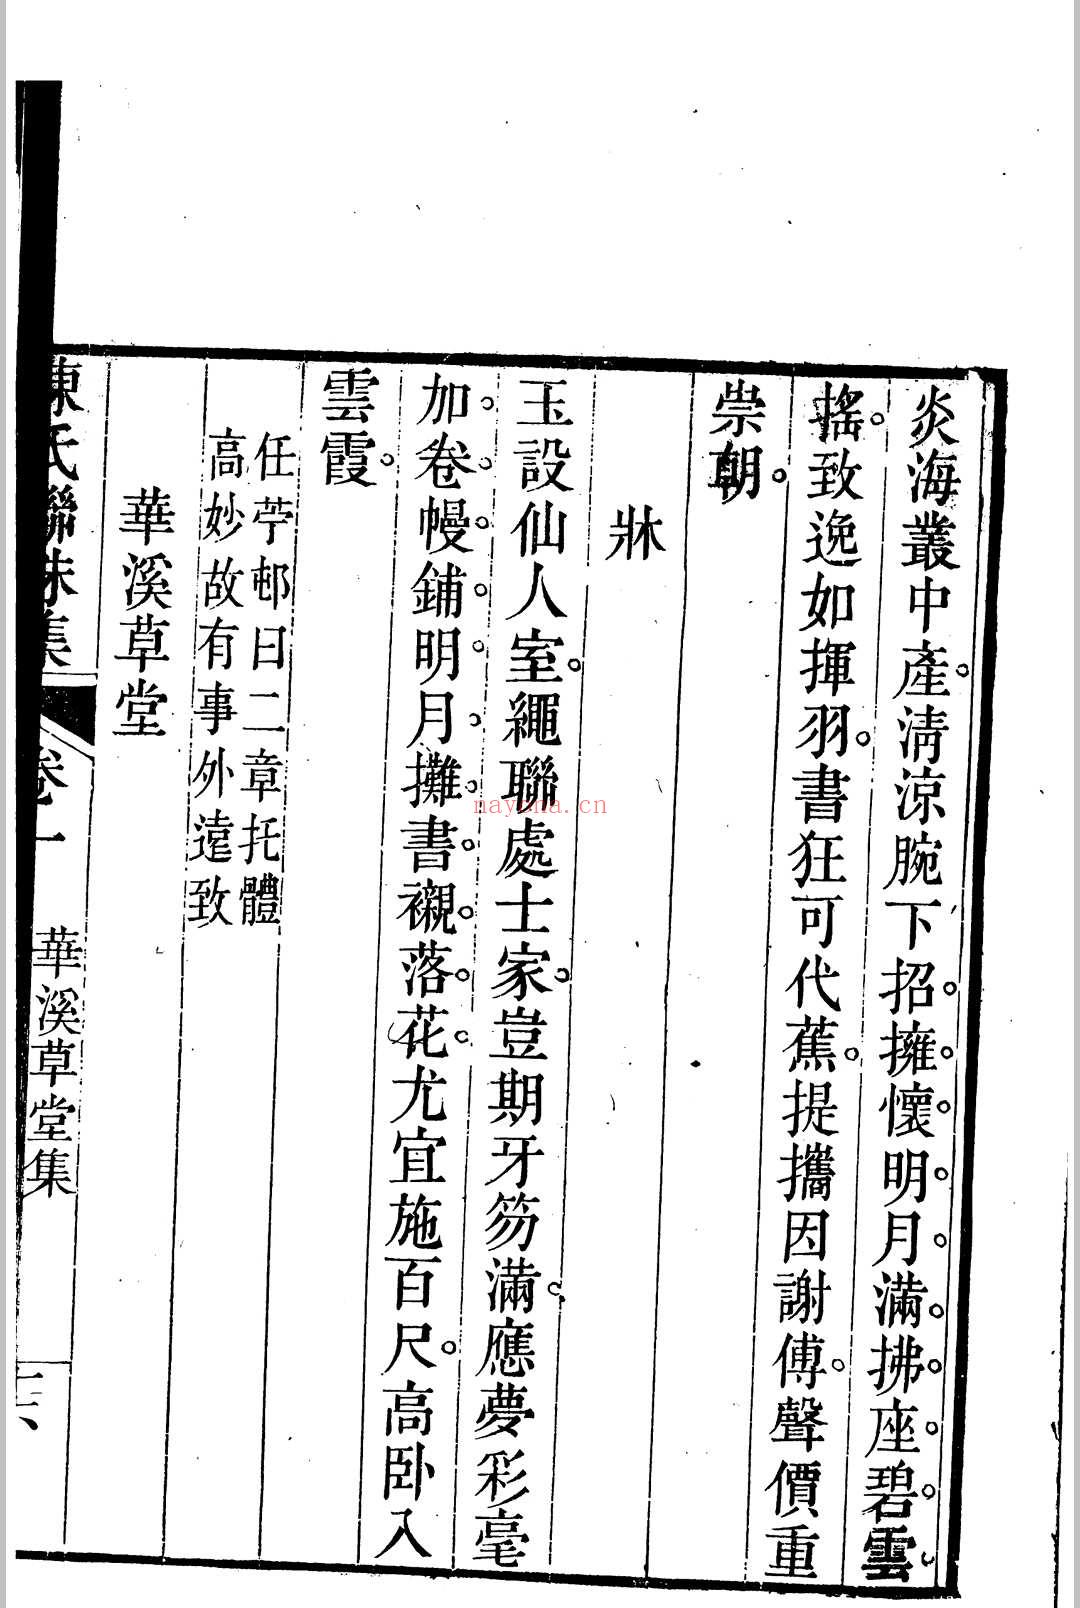 炎海叢中產清涼腕下招擁懷明月滿拂座碧雲
搖致逸如揮羽書狂可代蕉提攜因謝傅聲價重
崇朝
牀
玉設仙人室繩聯處士家豈期牙笏滿應夢彩毫
加卷幔鋪明月攤書襯落花尤宜施百尺高臥入
雲霞
任苧邨曰二章托體
高妙故有事外遠致
華溪草堂
陳氏聯珠集
卷一
華溪草堂集
十六
nayona.cn